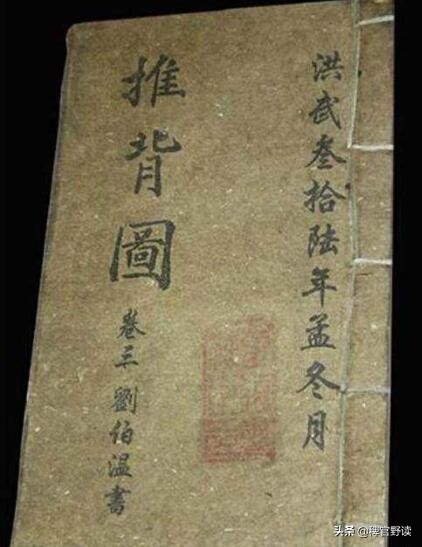 洪武叁拾陸年孟冬月
推背圖
卷三劉伯温書
头条 @稗官野读